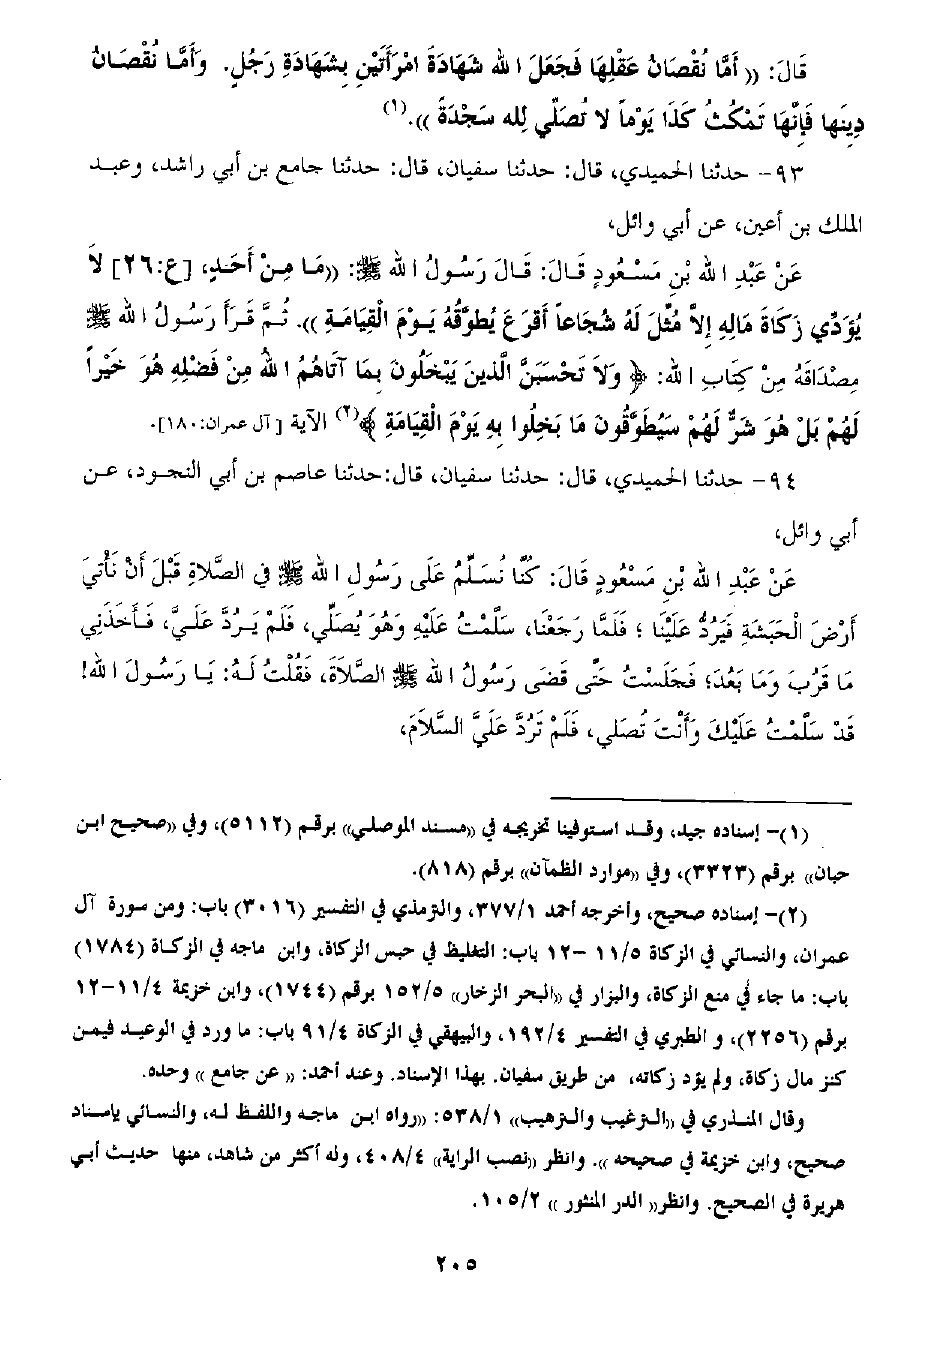 قَالَ: (( أَمَّا نُقْصَانُ عَقْلِهَا فَجَعَلَ اللهُ شَهَادَةَ امْرَأَتَيْنِ بِشَهَادَةِ رَجُلٍ. وَأَمَّا نُقْصَانُ
دِينِهَا فَإِنَّهَا تَمْكُثُ كَذَا يَوْماً لاَ تُصَلِّي لِلهِ سَجْدَةً )).(١)
٩٣- حدثنا الحميدي، قال: حدثنا سفيان، قال: حدثنا جامع بن أبي راشد، وعبد
الملك بن أعين، عن أبي وائل،
عَنْ عَبْدِ اللهِ بْنِ مَسْعُودٍ قَالَ: قَالَ رَسُولُ اللهِ ﷺ: ((مَا مِنْ أَحَدٍ، [ع:٢٦] لاَ
يُؤَدِّي زَكَاةَ مَالِهِ إِلاَّ مُثِّلَ لَهُ شُجَاعاً أَقْرَعَ يُطَوَّقُهُ يَوْمَ الْقِيَامَةِ )). ثُمَّ قَرَأَ رَسُولُ اللهِ ﷺ
مِصْدَاقَهُ مِنْ كِتَابِ اللهِ: ﴿ وَلاَ تَحْسَبَنَّ الَّذِينَ يَبْخَلُونَ بِمَا آتَاهُمُ اللهُ مِنْ فَضْلِهِ هُوَ خَيْراً
لَهُمْ بَلْ هُوَ شَرٌّ لَهُمْ سَيُطَوَّقُونَ مَا بَخِلُوا بِهِ يَوْمَ الْقِيَامَةِ ﴾(٢) الآية [آل عمران:١٨٠].
٩٤- حدثنا الحميدي، قال: حدثنا سفيان، قال:حدثنا عاصم بن أبي النجود، عن
أبي وائل،
عَنْ عَبْدِ اللهِ بْنِ مَسْعُودٍ قَالَ: كُنَّا نُسَلِّمُ عَلَى رَسُولِ اللهِ ﷺ فِي الصَّلاَةِ قَبْلَ أَنْ نَأْتِيَ
أَرْضَ الْحَبَشَةِ فَيَرُدُّ عَلَيْنَا ؛ فَلَمَّا رَجَعْنَا، سَلَّمْتُ عَلَيْهِ وَهُوَ يُصَلِّي، فَلَمْ يَرُدَّ عَلَيَّ، فَأَخَذَنِي
مَا قَرُبَ وَمَا بَعُدَ؛ فَجَلَسْتُ حَتَّى قَضَى رَسُولُ اللهِ ﷺ الصَّلاَةَ، فَقُلْتُ لَهُ: يَا رَسُولَ اللهِ!
قَدْ سَلَّمْتُ عَلَيْكَ وَأَنْتَ تُصَلِّي، فَلَمْ تَرُدَّ عَلَيَّ السَّلاَمَ،
(١)- إسناده جيد، وقد استوفينا تخريجه في ((مسند الموصلي)) برقم (٥١١٢)، وفي ((صحيح ابن
حبان)) برقم (٣٣٢٣)، وفي ((موارد الظمآن)) برقم (٨١٨).
(٢)- إسناده صحيح، وأخرجه أحمد ٣٧٧/١، والترمذي في التفسير (٣٠١٦) باب: ومن سورة آل
عمران، والنسائي في الزكاة ١١/٥ -١٢ باب: التغليظ في حبس الزكاة، وابن ماجه في الزكاة (١٧٨٤)
باب: ما جاء في منع الزكاة، والبزار في ((البحر الزخار)) ١٥٢/٥ برقم (١٧٤٤)، وابن خزيمة ١١/٤-١٢
برقم (٢٢٥٦)، و الطبري في التفسير ١٩٢/٤، والبيهقي في الزكاة ٩١/٤ باب: ما ورد في الوعيد فيمن
كنز مال زكاة، ولم يؤد زكاته، من طريق سفيان. بهذا الإسناد. وعند أحمد: (( عن جامع )) وحده.
وقال المنذري في ((الترغيب والترهيب)) ٥٣٨/١: ((رواه ابن ماجه واللفظ له، والنسائي بإسناد
صحيح، وابن خزيمة في صحيحه )). وانظر ((نصب الراية)) ٤٠٨/٤، وله أكثر من شاهد، منها حديث أبي
هريرة في الصحيح. وانظر(( الدر المنثور )) ١٠٥/٢.
٢٠٥